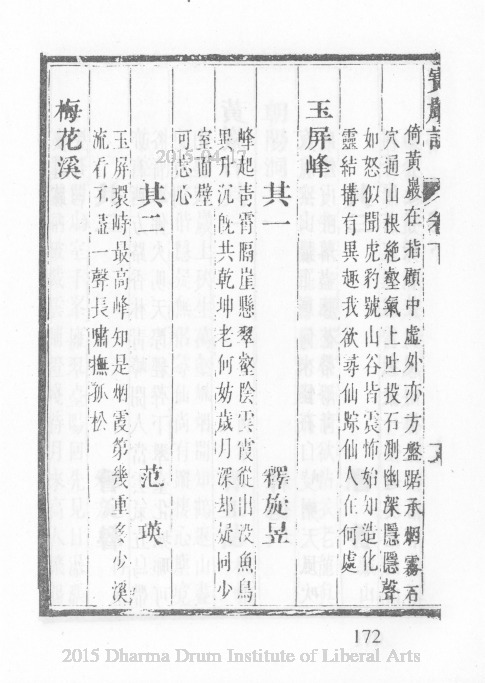 寶巖記 卷下
倚黃巖在指顧中虛外亦方盤踞承烟霧石
穴通山根絕壑氣上吐投石測幽深隱隱聲
如怒似聞虎豹號山谷皆震怖始知造化
靈結搆有異趣我欲尋仙踪仙人在何處
玉屏峰
其一 釋旋昱
峰起靑霄關崖懸翠壑陰雲霞從出没魚鳥
異升沉旣共乾坤老何妨歲月深却疑同少
室面壁可悉心
其二 范瑛
玉屏環峙最高峰知是烟霞第幾重多少溪
流看不盡一聲長嘯撫孤松
梅花溪
2015-04-17
172
2015 Dharma Drum Institute of Liberal Arts